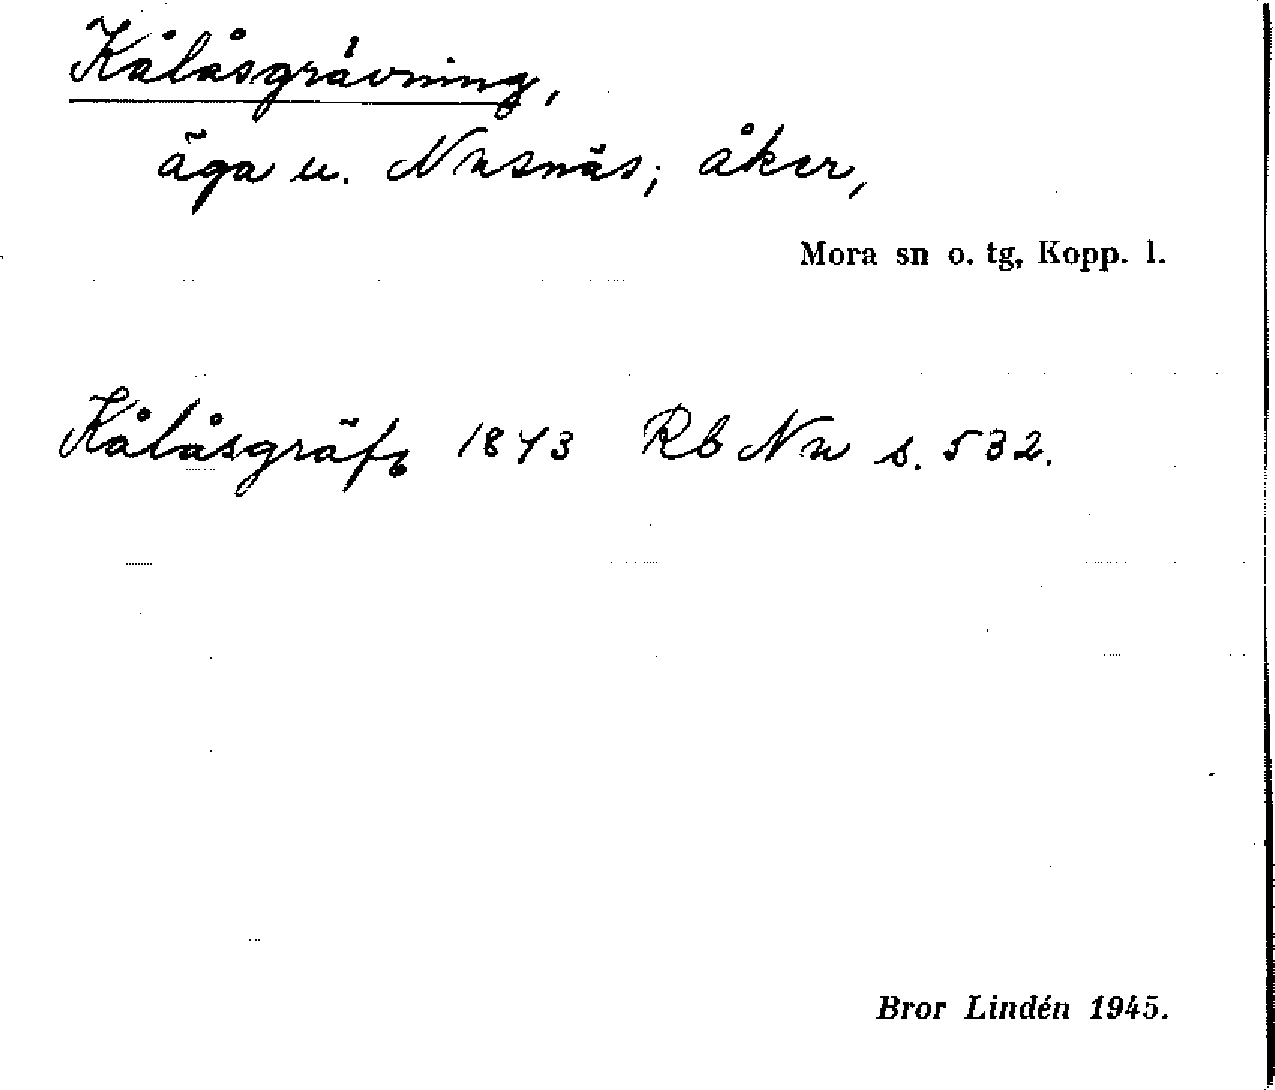 Kålåsgrävning,
äga u. Nusnäs; åker,
Mora sn o. tg, Kopp. l.
Kålåsgräfs 1843 Rb Nu s. 532.
Bror Lindén 1945.